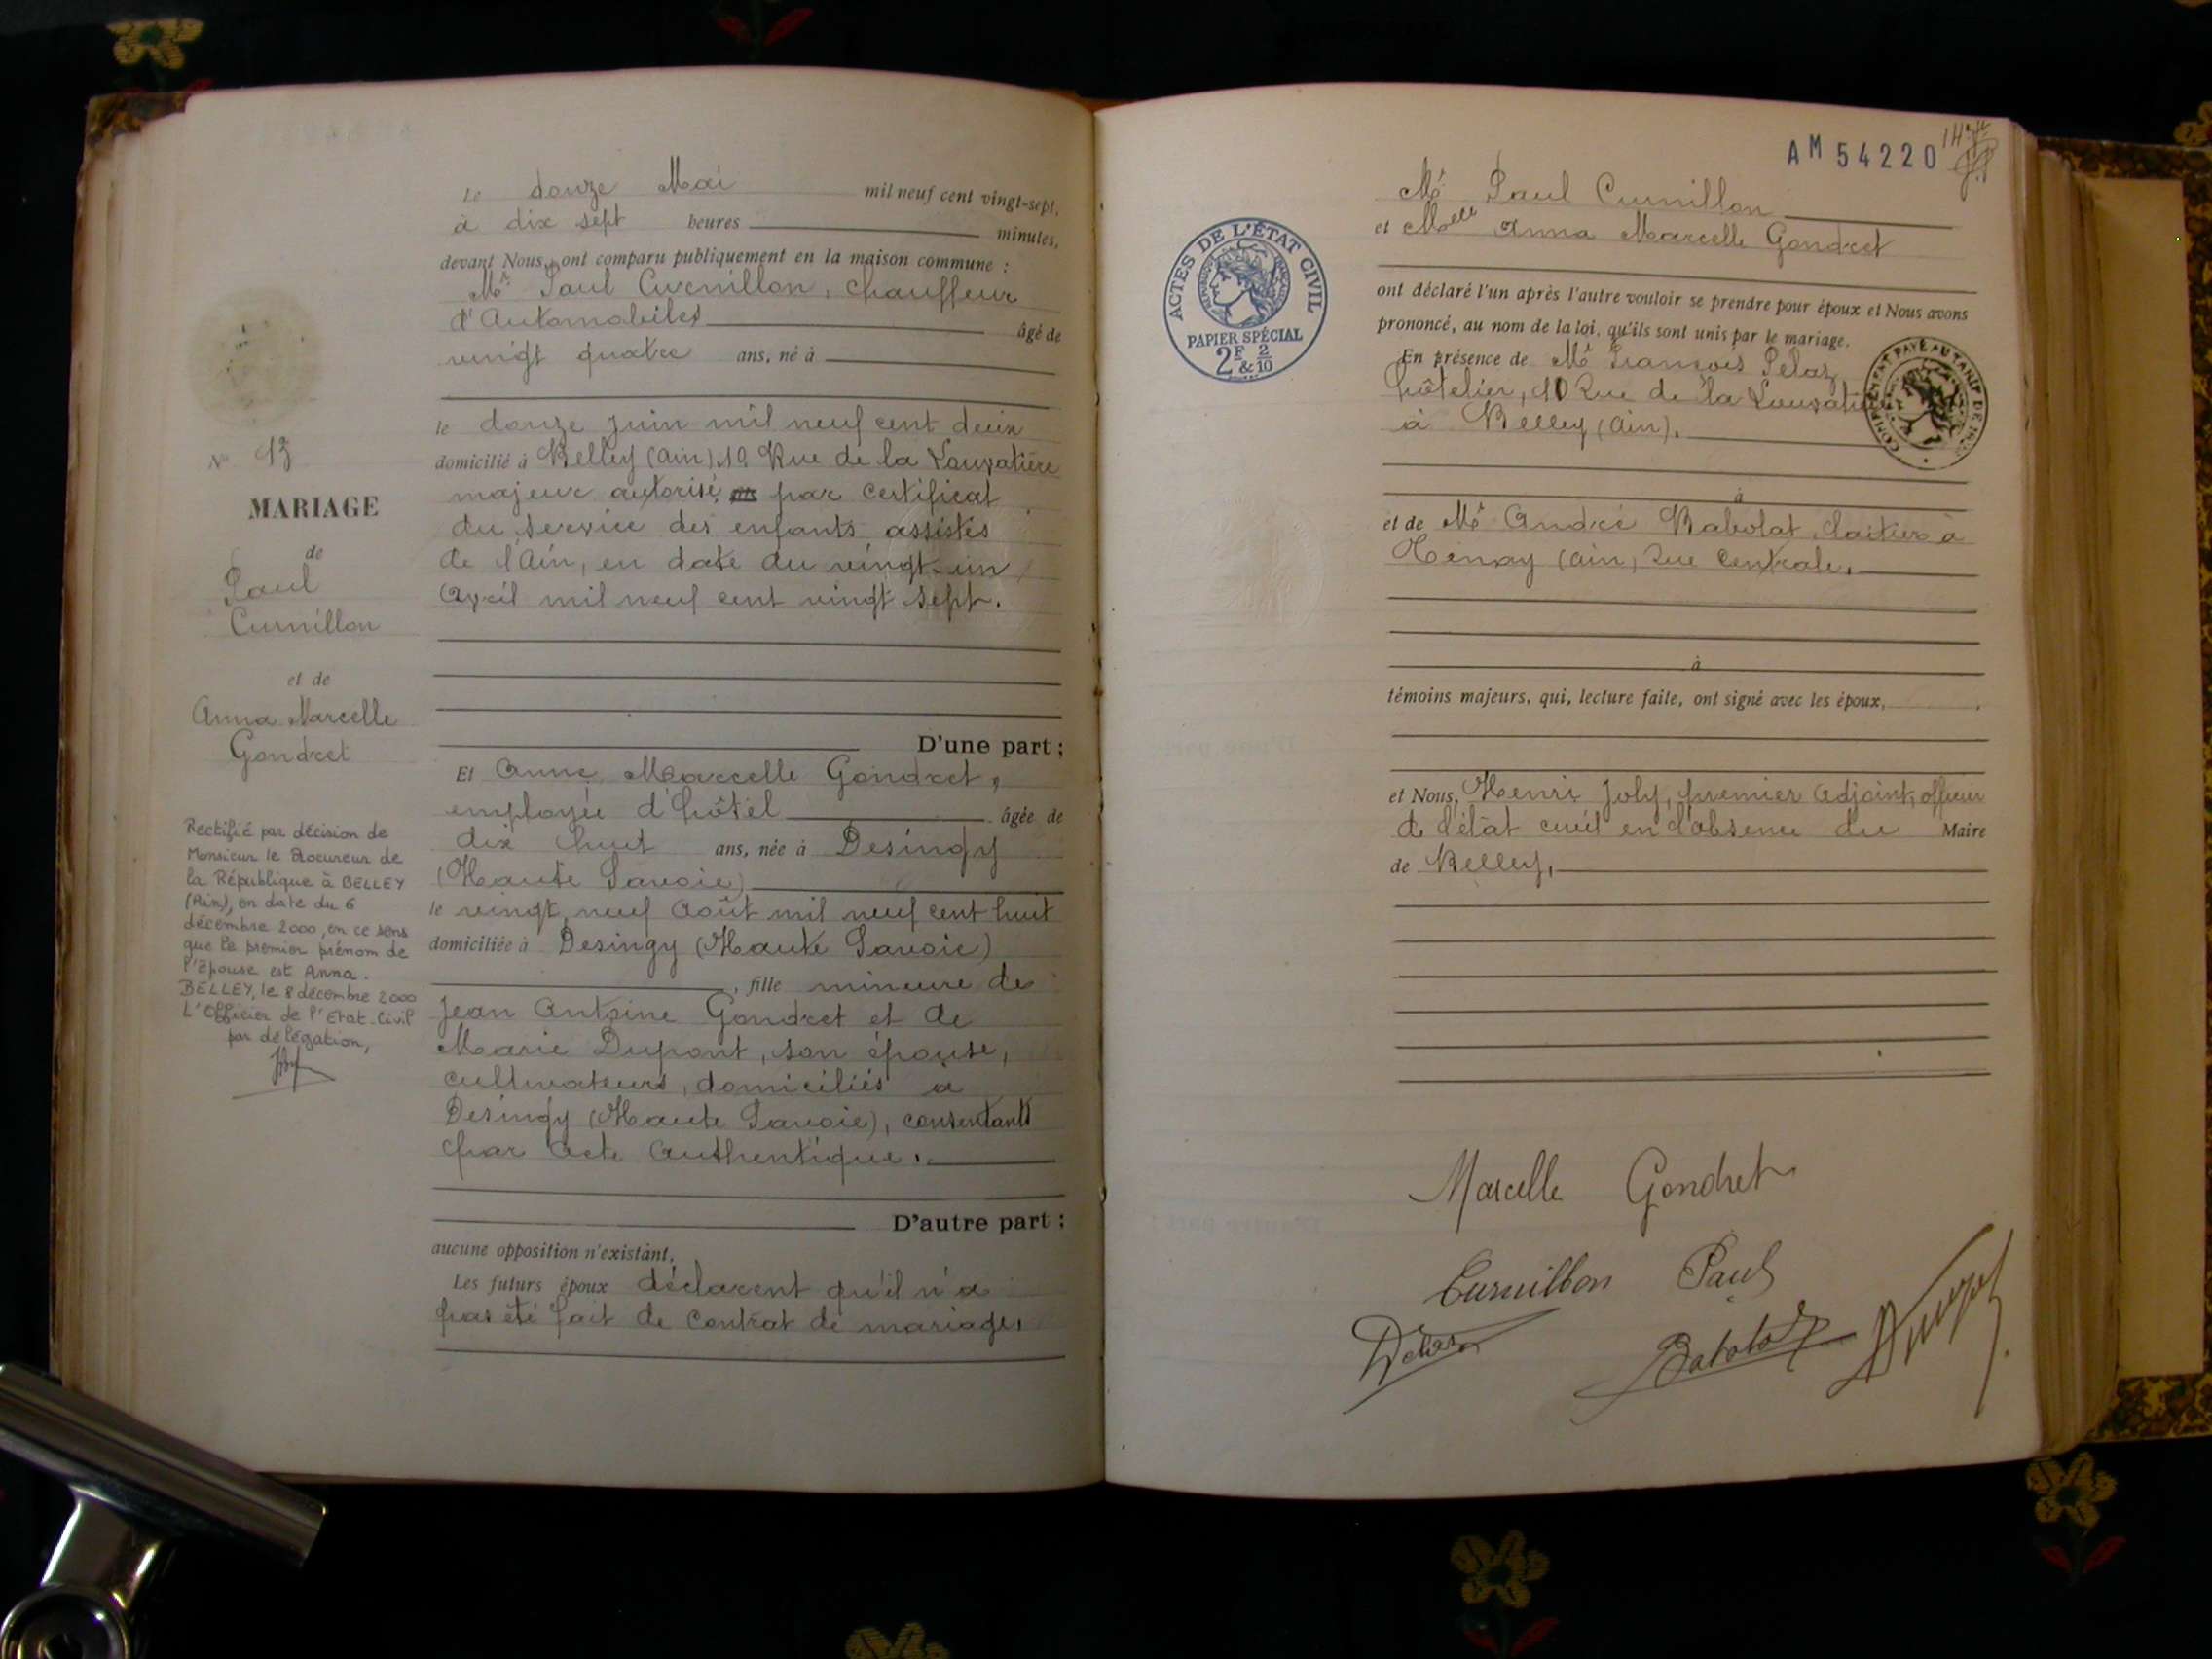 Le douze Mai mil neuf cent vingt-sept,
à dix sept heures minutes,
devant Nous, ont comparu publiquement en la maison commune :
Mr Paul Curnillon, chauffeur
d'Automobiles âgé de
vingt quatre ans, né à
le douze juin mil neuf cent deux
domicilié à Belley (Ain) 10 Rue de la
majeur autorisé par certificat
du service des enfants assistés
de l'Ain, en date du vingt-un
Avril mil neuf cent vingt sept.
D'une part ;
Et Anne Marcelle Gondret,
employée d'hôtel âgée de
dix huit ans, née à Desingy
(Haute Savoie)
le vingt neuf Août mil neuf cent huit
domiciliée à Desingy (Haute Savoie)
, fille mineure de
Jean Antoine Gondret et de
Marie Dupont, son épouse,
cultivateurs, domiciliés à
Desingy (Haute Savoie), consentants
par acte authentique.
D'autre part :
aucune opposition n'existant.
Les futurs époux déclarent qu'il n'a
pas été fait de contrat de mariage.
No 13
MARIAGE
de
Paul
Curnillon
et de
Anna Marcelle
Gondret
Rectifié par décision de
Monsieur le Procureur de
la République à BELLEY
(Ain), en date du 6
décembre 2000, en ce sens
que le premier prénom de
l'épouse est Anna.
BELLEY, le 8 décembre 2000
L'Officier de l'Etat-Civil
par délégation,
AM 54220
Mr Paul Curnillon
et Melle Anna Marcelle Gondret
ACTES DE L'ÉTAT CIVIL
RÉPUBLIQUE FRANÇAISE
PAPIER SPÉCIAL
2F & 2/10
ont déclaré l'un après l'autre vouloir se prendre pour époux et Nous avons
prononcé, au nom de la loi, qu'ils sont unis par le mariage.
En présence de Mr François Pelaz
hôtelier, 10 Rue de la
à Belley (Ain).
à
et de Mr André Babolat, laitier à
(Ain) Rue Centrale.
à
témoins majeurs, qui, lecture faite, ont signé avec les époux,
et Nous, Henri Joly, premier Adjoint, officier
de l'état civil en l'absence du Maire
de Belley.
Marcelle Gondret
Curnillon Paul
Babolat